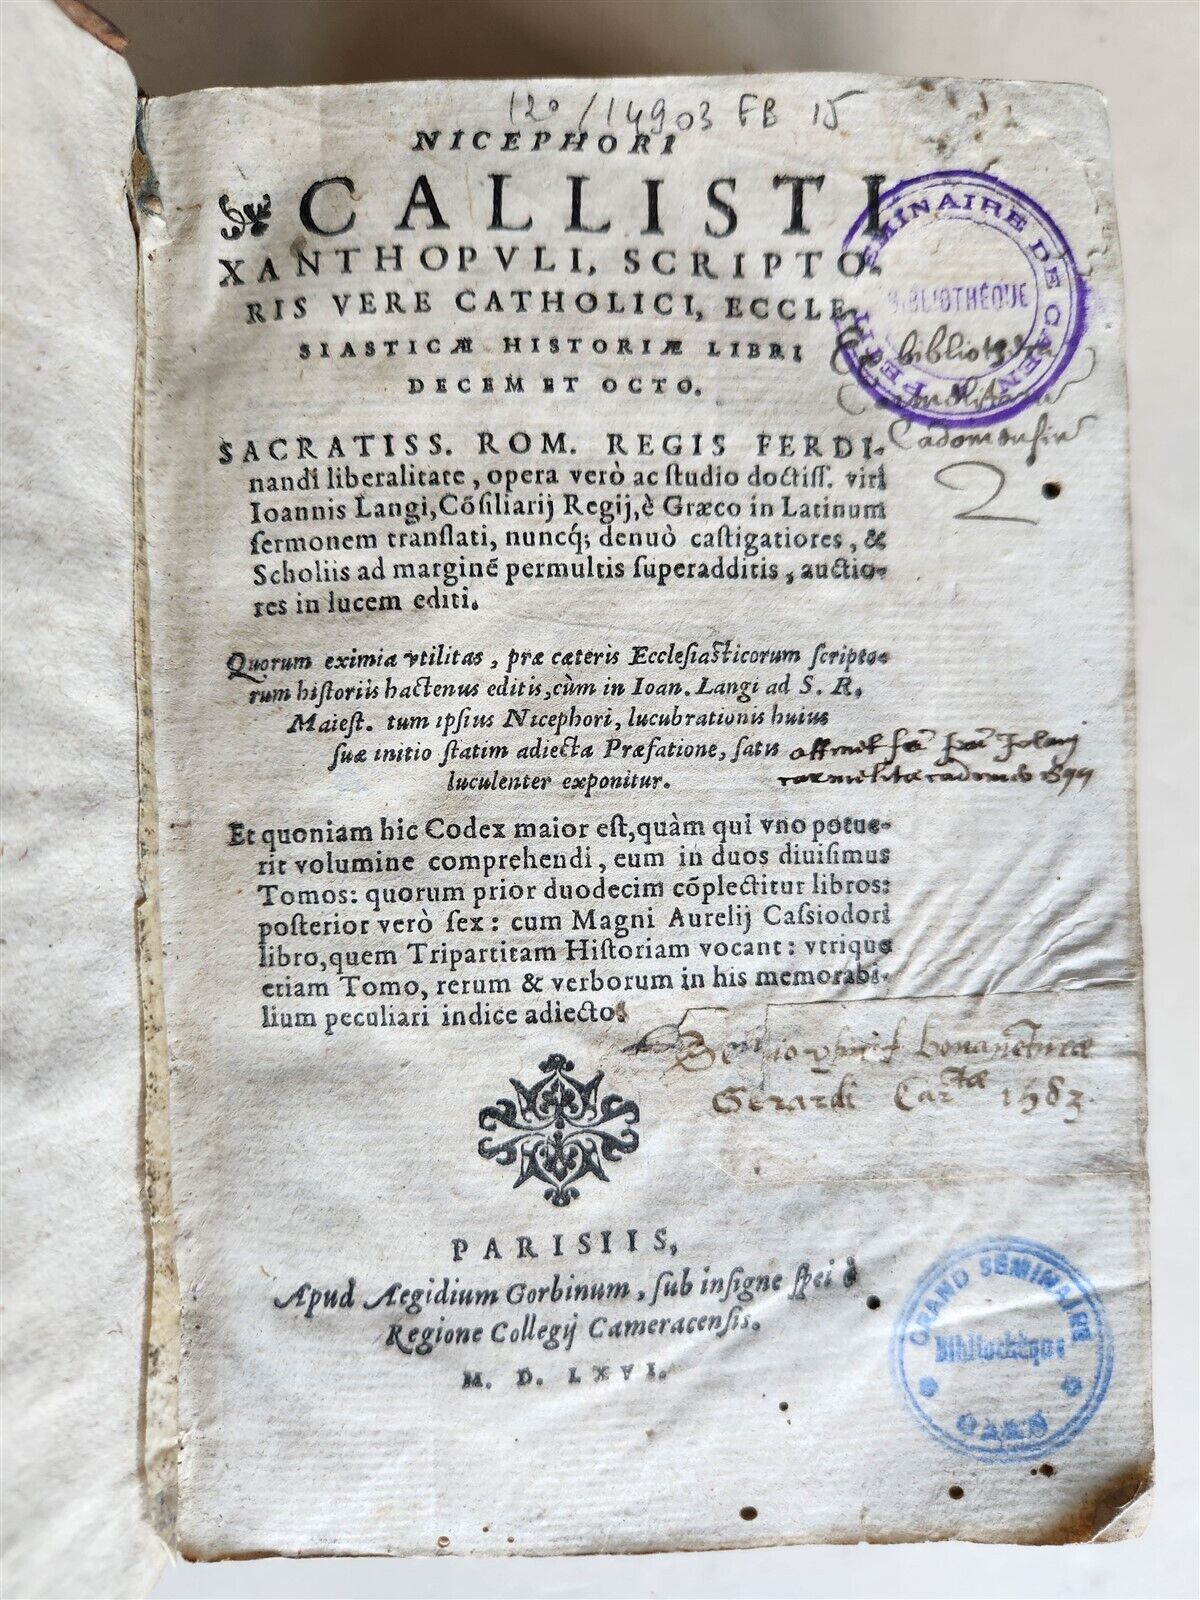 120/14903 FB 15
NICEPHORI
CALLISTI
XANTHOPVLI, SCRIPTO-
RIS VERE CATHOLICI, ECCLE-
SIASTICÆ HISTORIÆ LIBRI
DECEM ET OCTO.
PETIT SEMINAIRE DE CAEN
BIBLIOTHÉQUE
Ex bibliotheca
Cadomensium
SACRATISS. ROM. REGIS FERDI-
nandi liberalitate, opera verò ac ſtudio doctiſſ. viri
Ioannis Langi, Cõſiliarij Regij, è Græco in Latinum
ſermonem tranſlati, nuncq́; denuò caſtigatiores, &
Scholiis ad marginẽ permultis ſuperadditis, auctio-
res in lucem editi.
Quorum eximia vtilitas, præ cæteris Eccleſiaſticorum ſcripto-
rum hiſtoriis hactenus editis, cùm in Ioan. Langi ad S. R.
Maieſt. tum ipſius Nicephori, lucubrationis huius
ſuæ initio ſtatim adiecta Præfatione, ſatis
luculenter exponitur.
carmelitæ
Et quoniam hic Codex maior eſt, quàm qui vno potue-
rit volumine comprehendi, eum in duos diuiſimus
Tomos: quorum prior duodecim cõplectitur libros:
poſterior verò ſex: cum Magni Aurelij Caſsiodori
libro, quem Tripartitam Hiſtoriam vocant: vtrique
etiam Tomo, rerum & verborum in his memorabi-
lium peculiari indice adiecto.
Gerardi 1583
PARISIIS,
Apud Aegidium Gorbinum, ſub inſigne ſpei è
Regione Collegij Cameracenſis.
M. D. LXVI.
GRAND SÉMINAIRE
Bibliothèque
CAEN